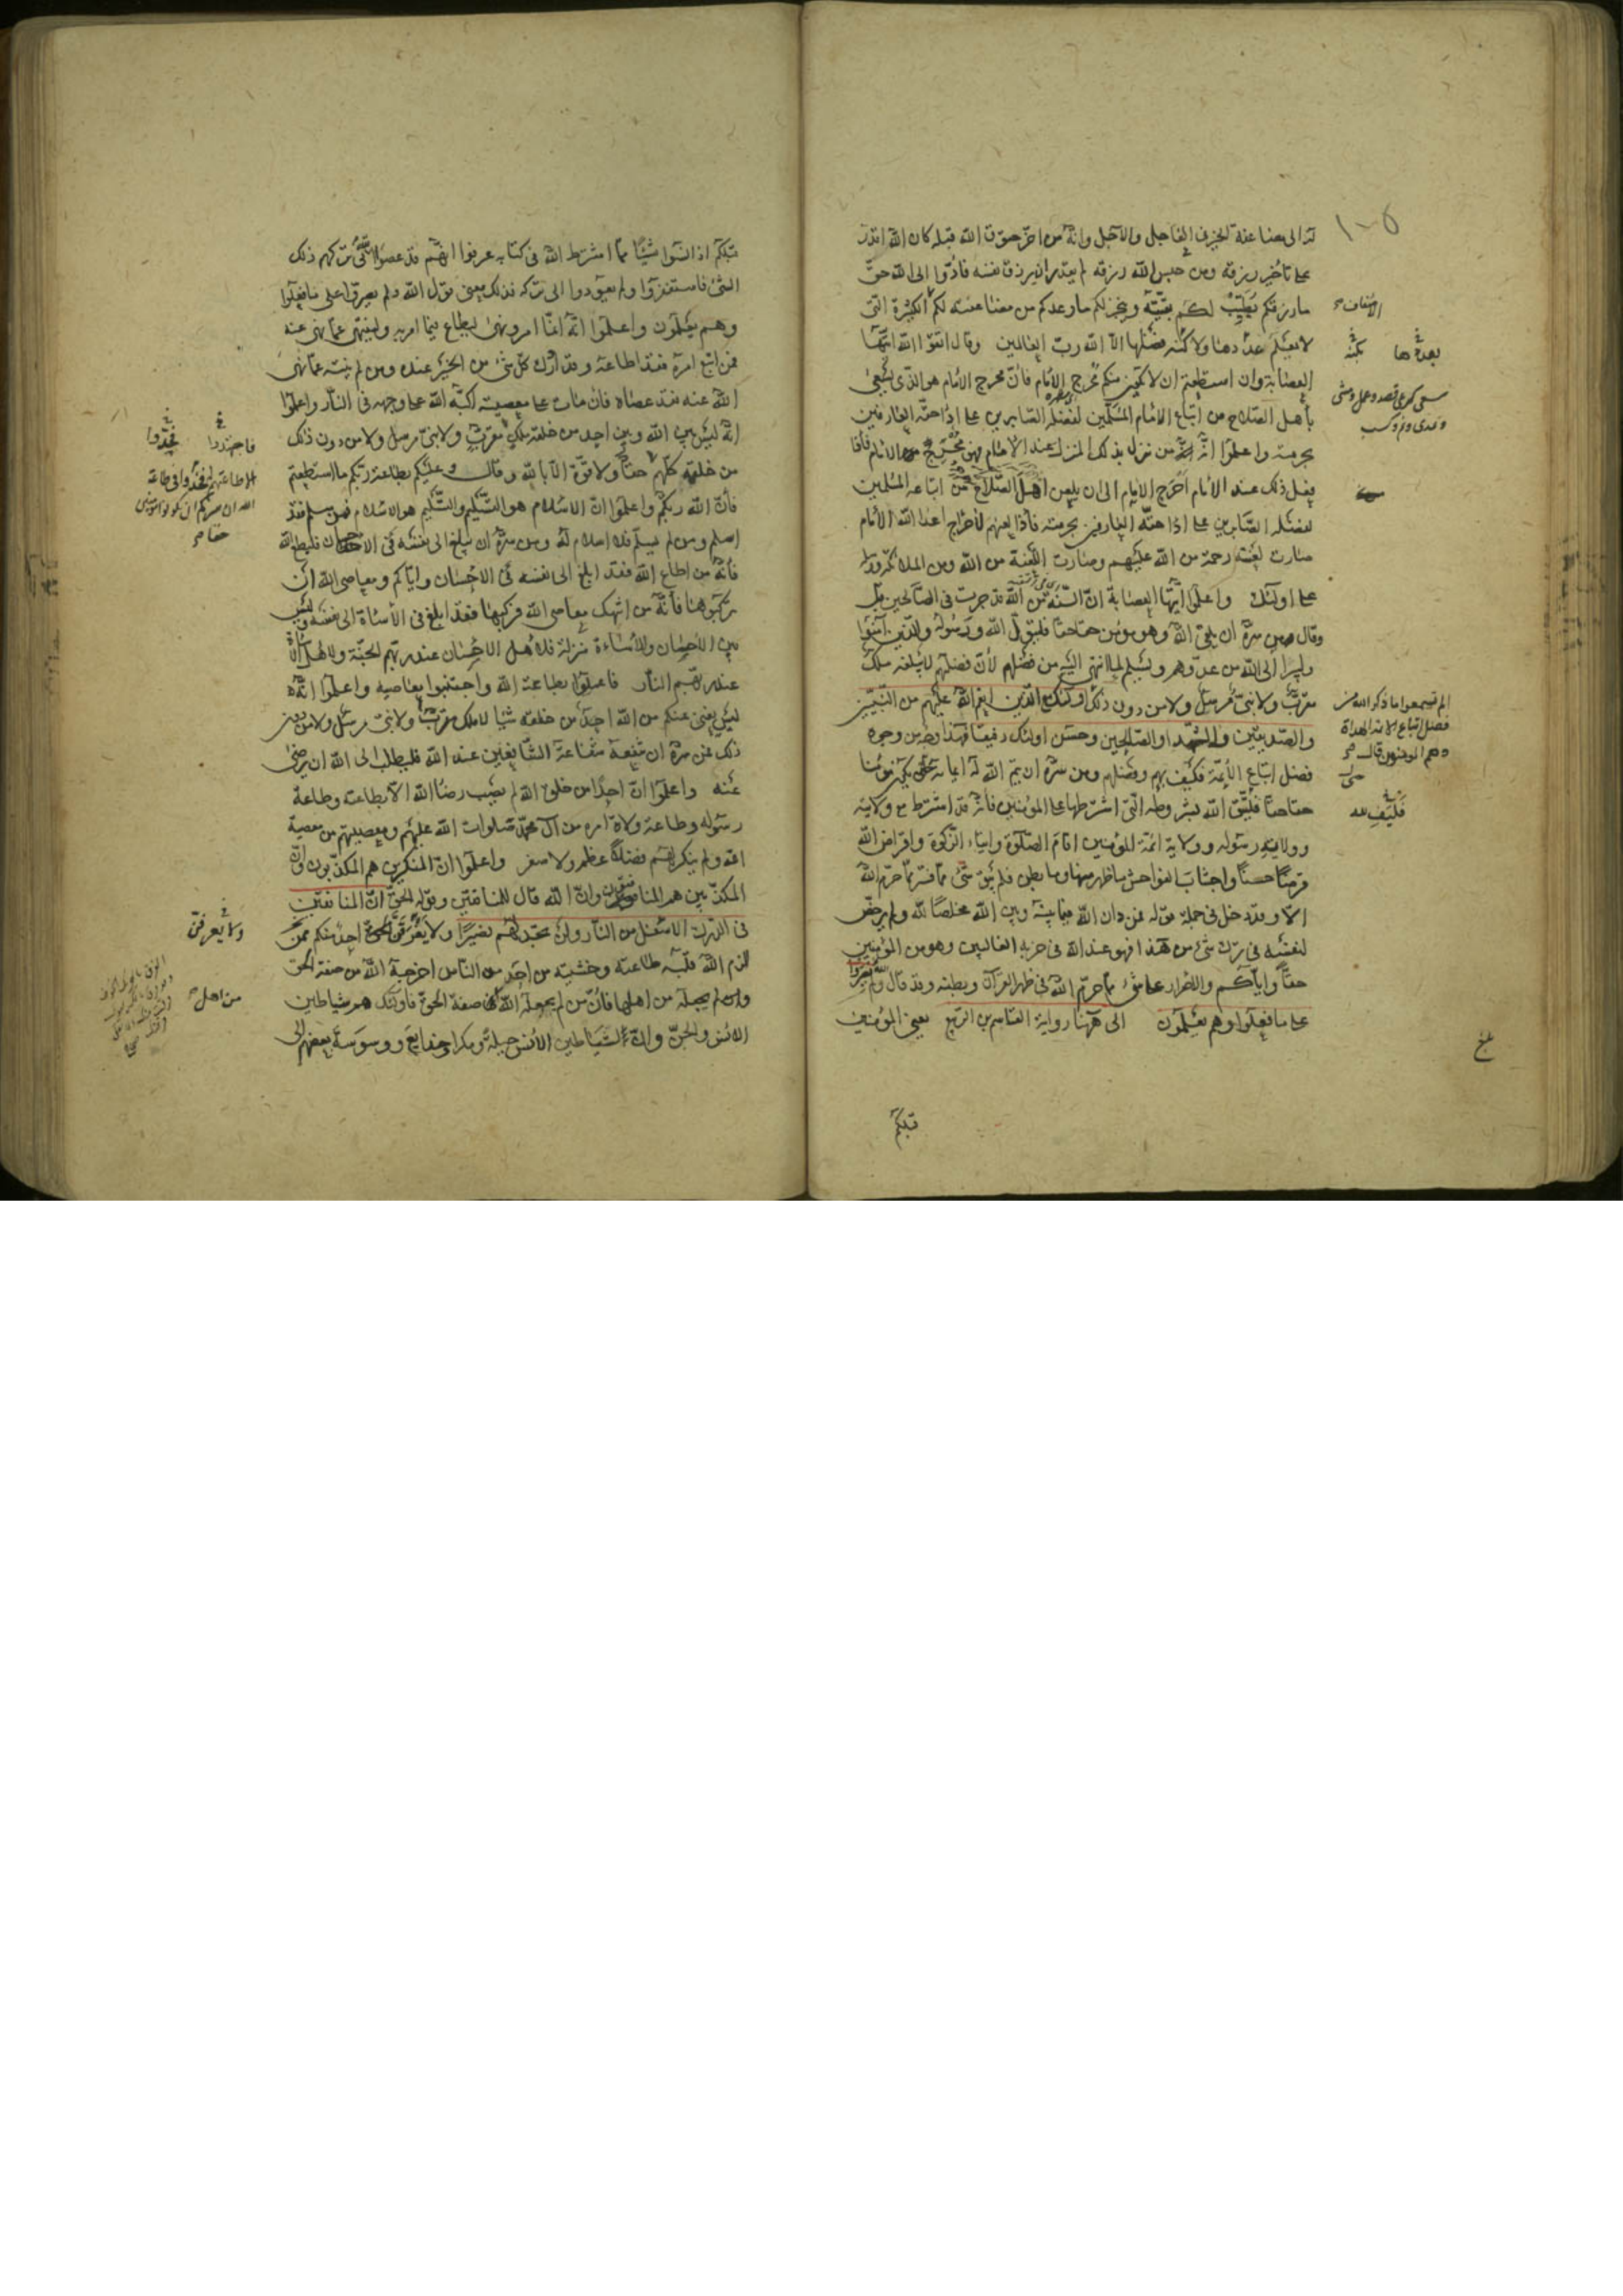 له الى مضاعفة الخير في العاجل والآجل وانه من اخر حقوق الله قبله كان الله اقدر
على تأخير رزقه ومن حبس الله رزقه لم يقدر ان يرزق نفسه فادوا الى الله حق
ما رزقكم يطيب لكم بقيته وينجز لكم ما وعدكم من مضاعفته لكم الكثيرة التي
لا يعلم عددها ولا كنه فضلها الا الله رب العالمين وقال اتقوا الله ايتها
العصابة وان استطعتم ان لا يكون منكم محرج الامام فان محرج الامام هو الذي يسعى
بأهل الصلاح من اتباع الامام المسلمين لفضله الصابرين على اداء حقه العارفين
بحرمته واعلموا انه من نزل بذلك المنزل عند الامام فهو محرج الامام فاذا
فعل ذلك عند الامام احرج الامام الى ان يلعن اهل الصلاح من اتباعه المسلمين
لفضله الصابرين على اداء حقه العارفين بحرمته فاذا لعنهم لاحراج اعداء الله الامام
صارت لعنته رحمة من الله عليهم وصارت اللعنة من الله ومن الملائكة ورسله
على اولئك واعلموا ايتها العصابة ان السنة من الله قد جرت في الصالحين قبل
وقال من سره ان يلقى الله وهو مؤمن حقا حقا فليتول الله ورسوله والذين آمنوا
وليبرأ الى الله من عدوهم ويسلم لما انتهى اليه من فضلهم لأن فضلهم لا يبلغه ملك
مقرب ولا نبي مرسل ولا من دون ذلك اولئك مع الذين انعم الله عليهم من النبيين
والصديقين والشهداء والصالحين وحسن اولئك رفيقا فهذا وجه من وجوه
فضل اتباع الأئمة فكيف بهم وفضلهم ومن سره ان يتم الله له ايمانه حتى يكون مؤمنا
حقا حقا فليتق الله بشروطه التي اشترطها على المؤمنين فانه قد اشترط مع ولايته
وولاية رسوله وولاية ائمة المؤمنين اقام الصلوة وايتاء الزكوة واقراض الله
قرضا حسنا واجتناب الفواحش ما ظهر منها وما بطن فلم يبق شئ مما فسر مما حرم الله
الا وقد دخل في جملة قوله فمن دان الله فيما بينه وبين الله مخلصا لله ولم يرخص
لنفسه في ترك شئ من هذا فهو عند الله في حزبه الغالبين وهو من المؤمنين
حقا واياكم والاصرار على شئ مما حرم الله في ظهر القرآن وبطنه وقد قال الله ولم يصروا
على ما فعلوا وهم يعلمون الى ههنا رواية القاسم بن الربيع يعني المؤمنين
قبلكم
الاضعاف
بعددها بكنه
الم تسمعوا ما ذكر الله من
فضل اتباع الائمة الهداة
وهم المؤمنون قال
فليف لله
بلغ
قبلكم اذا نسوا شيئا مما اشترط الله في كتابه عرفوا انهم قد عصوا الله في تركهم ذلك
الشئ فاستغفروا ولم يعودوا الى تركه فذلك معنى قول الله ولم يصروا على ما فعلوا
وهم يعلمون واعلموا انه انما امر ونهى ليطاع فيما امر به ولينتهى عما نهى عنه
فمن اتبع امره فقد اطاعه وقد ادرك كل شئ من الخير عنده ومن لم ينته عما نهى
الله عنه فقد عصاه فان مات على معصيته اكبه الله على وجهه في النار واعلموا
انه ليس بين الله وبين احد من خلقه ملك مقرب ولا نبي مرسل ولا من دون ذلك
من خلقه كلهم حقا ولا قوة الا بالله وقال وعليكم بطاعة ربكم ما استطعتم
فان الله ربكم واعلموا ان الاسلام هو التسليم والتسليم هو الاسلام فمن سلم فقد
اسلم ومن لم يسلم فلا اسلام له ومن سره ان يبلغ الى نفسه في الاحسان فليطع الله
فانه من اطاع الله فقد ابلغ الى نفسه في الاحسان واياكم ومعاصي الله ان
تركبوها فانه من انتهك معاصي الله فركبها فقد ابلغ في الاساءة الى نفسه وليس
بين الاحسان والاساءة منزلة فلاهل الاحسان عند ربهم الجنة ولاهل الاساءة
عند ربهم النار فاعملوا بطاعة الله واجتنبوا معاصيه واعلموا انه
ليس يغني عنكم من الله احد من خلقه شيئا لا ملك مقرب ولا نبي مرسل ولا من دون
ذلك فمن سره ان تنفعه شفاعة الشافعين عند الله فليطلب الى الله ان يرضى
عنه واعلموا ان احدا من خلق الله لم يصب رضا الله الا بطاعته وطاعة
رسوله وطاعة ولاة امره من آل محمد صلوات الله عليهم ومعصيتهم من معصية
الله ولم ينكر لهم فضلا عظم ولا صغر واعلموا ان المنكرين هم المكذبون وان
المكذبين هم المنافقون وان الله قال للمنافقين وقوله الحق ان المنافقين
في الدرك الاسفل من النار ولن تجد لهم نصيرا ولا يفرقن احد منكم ممن
الزم الله قلبه طاعته وخشيته من احد من الناس اخرجه الله من صفة الحق
ولم يجعله من اهلها فان من لم يجعله الله من صفة الحق فاولئك هم شياطين
الانس والجن وان لشياطين الانس حيلة ومكرا وخدايع ووسوسة بعضهم الى
فاجتهدوا فجدوا
الله ان سركم ان تكونوا مؤمنين
حقا
ولا يعرفن
من اهل